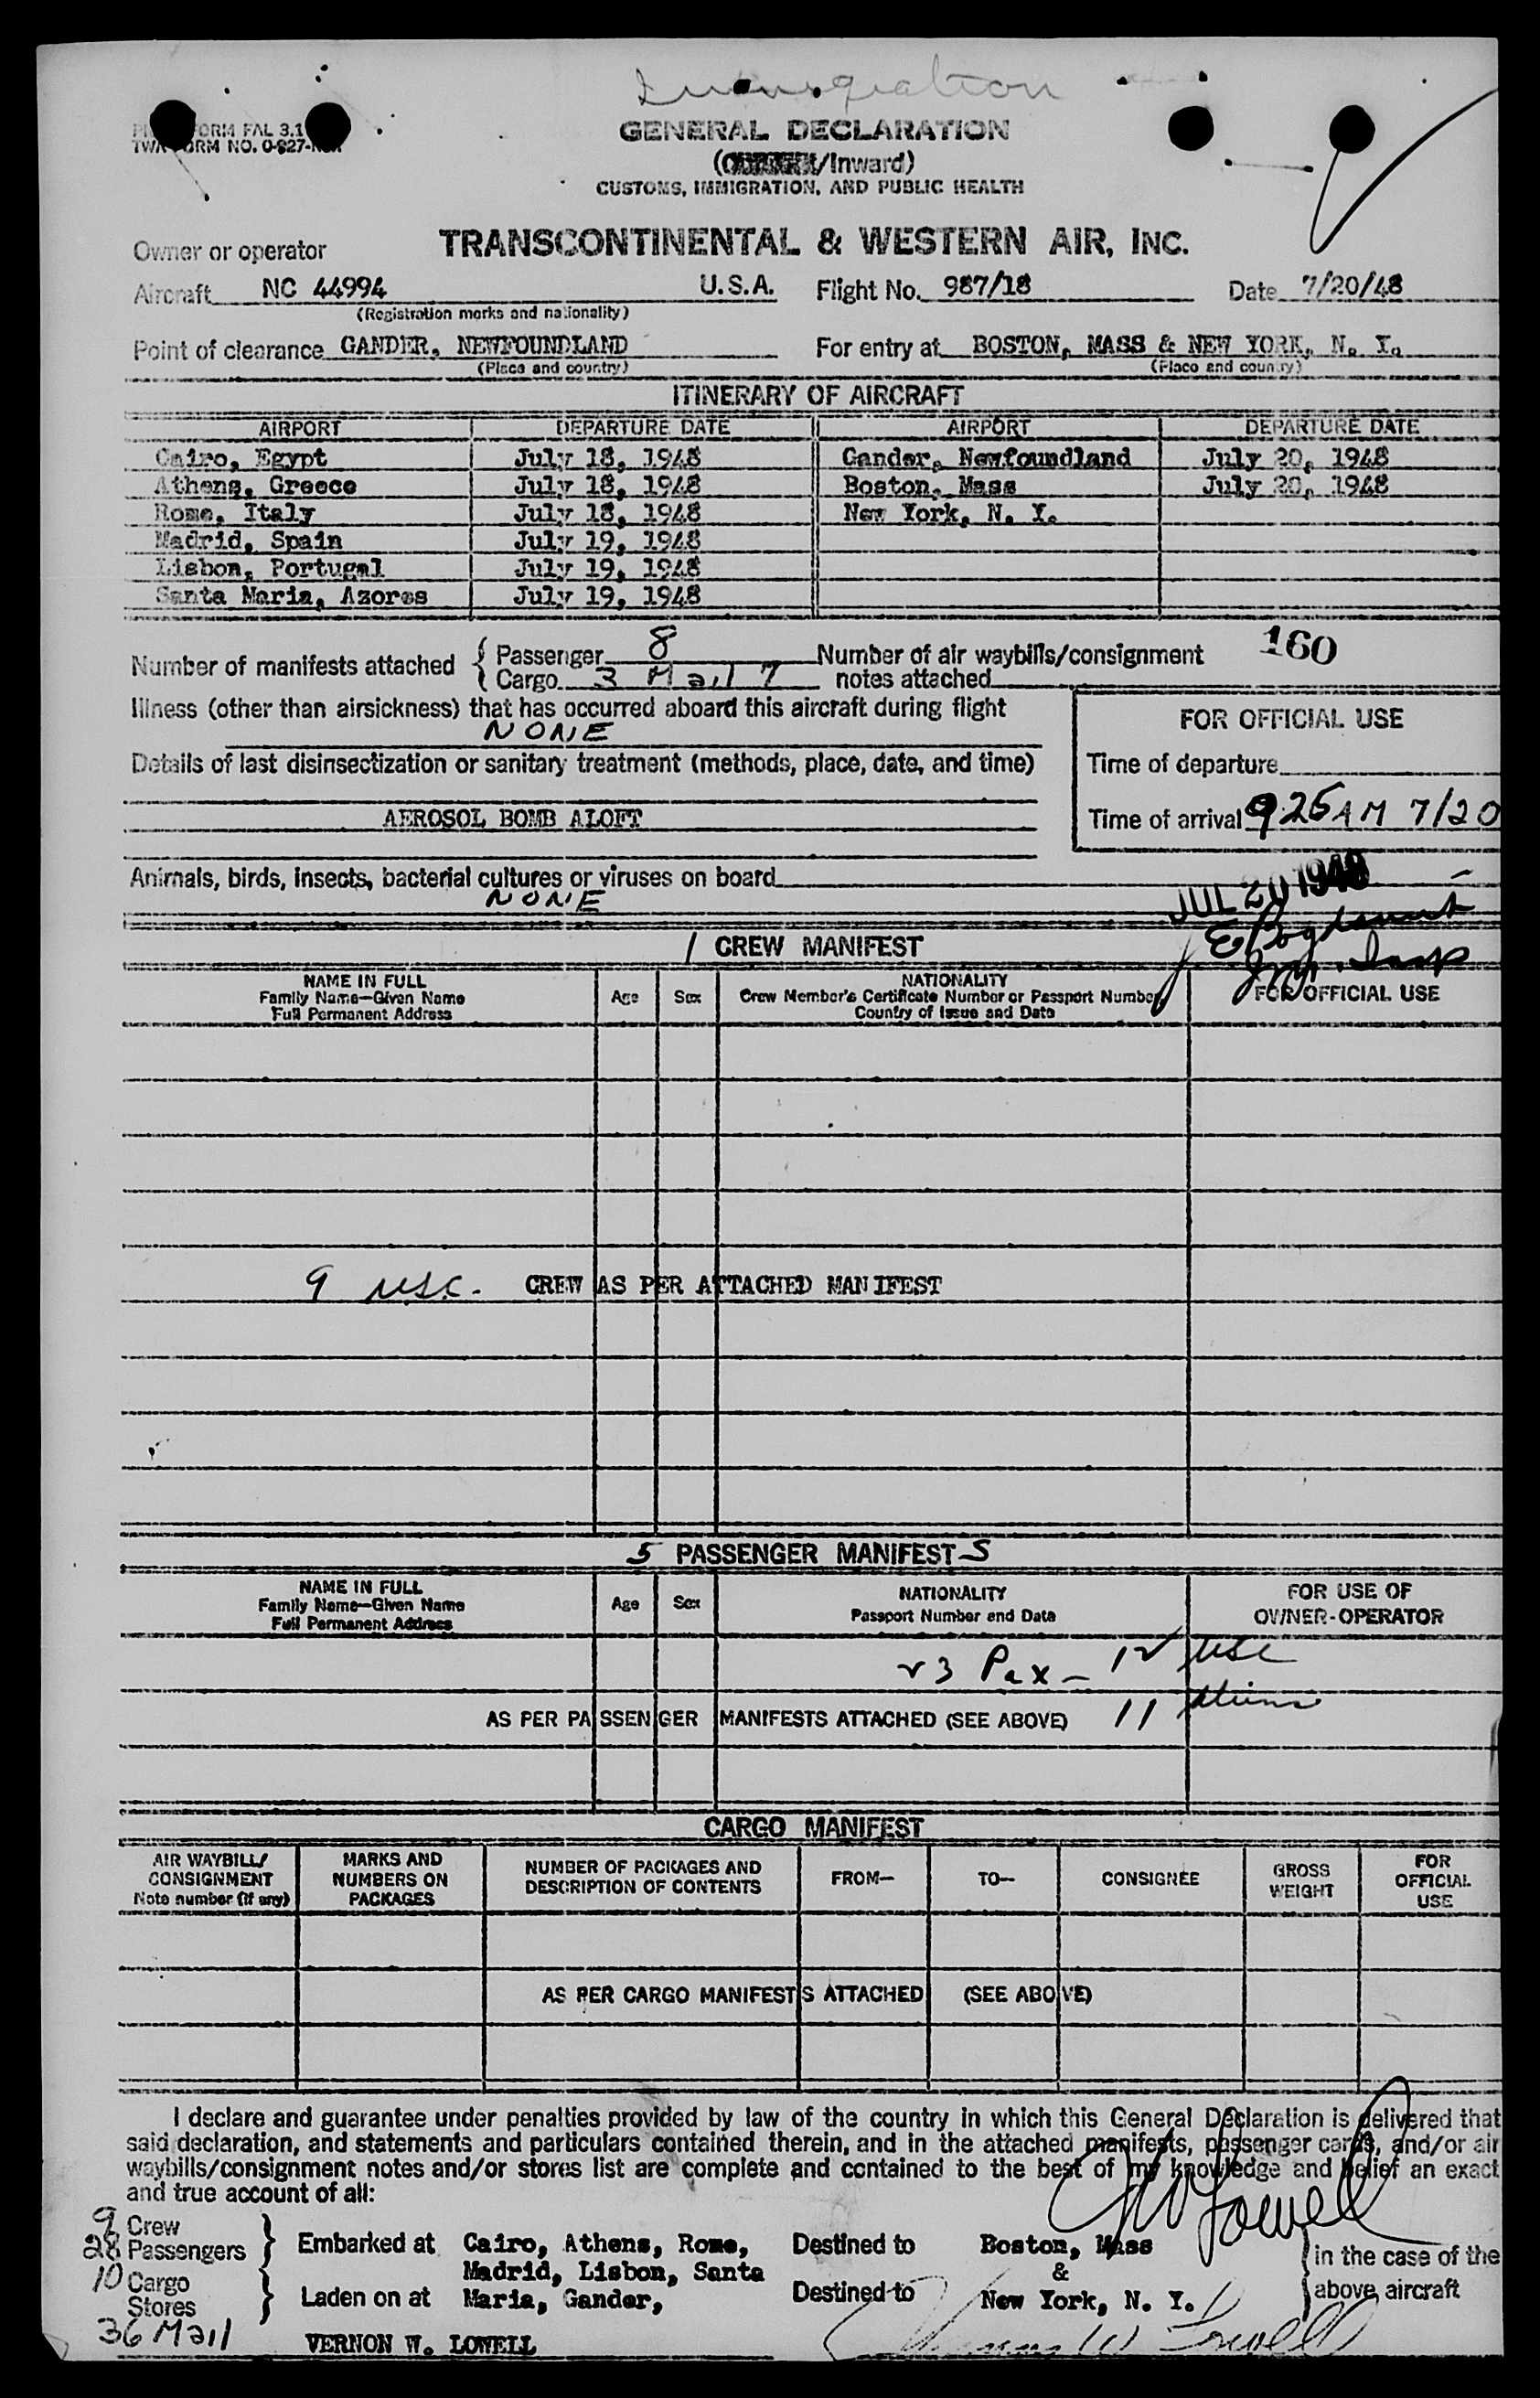 Immigration
FORM FAL 3.1
TWA FORM NO. O-827-
GENERAL DECLARATION
(/Inward)
CUSTOMS, IMMIGRATION, AND PUBLIC HEALTH
Owner or operator TRANSCONTINENTAL & WESTERN AIR, INC.
Aircraft NC 44994 U.S.A. Flight No. 987/18 Date 7/20/48
(Registration marks and nationality)
Point of clearance GANDER, NEWFOUNDLAND For entry at BOSTON, MASS & NEW YORK, N. Y.
(Place and country) (Place and country)
ITINERARY OF AIRCRAFT
AIRPORT DEPARTURE DATE AIRPORT DEPARTURE DATE
Cairo, Egypt July 18, 1948 Gander, Newfoundland July 20, 1948
Athens, Greece July 18, 1948 Boston, Mass July 20, 1948
Rome, Italy July 18, 1948 New York, N. Y.
Madrid, Spain July 19, 1948
Lisbon, Portugal July 19, 1948
Santa Maria, Azores July 19, 1948
Number of manifests attached { Passenger 8 Number of air waybills/consignment 160
Cargo 3 Mail 7 notes attached
Illness (other than airsickness) that has occurred aboard this aircraft during flight
NONE
FOR OFFICIAL USE
Details of last disinsectization or sanitary treatment (methods, place, date, and time)
Time of departure
AEROSOL BOMB ALOFT
Time of arrival 9:25 AM 7/20
Animals, birds, insects, bacterial cultures or viruses on board
NONE
JUL 20 1948
1 CREW MANIFEST
NAME IN FULL
Family Name—Given Name
Full Permanent Address
Age Sex
NATIONALITY
Crew Member's Certificate Number or Passport Number
Country of Issue and Date
FOR OFFICIAL USE
9 USC. CREW AS PER ATTACHED MANIFEST
5 PASSENGER MANIFEST S
NAME IN FULL
Family Name—Given Name
Full Permanent Address
Age Sex
NATIONALITY
Passport Number and Date
FOR USE OF
OWNER-OPERATOR
23 Pax - 12 USC
11 Aliens
AS PER PASSENGER MANIFESTS ATTACHED (SEE ABOVE)
CARGO MANIFEST
AIR WAYBILL/
CONSIGNMENT
Note number (if any)
MARKS AND
NUMBERS ON
PACKAGES
NUMBER OF PACKAGES AND
DESCRIPTION OF CONTENTS
FROM— TO— CONSIGNEE
GROSS
WEIGHT
FOR
OFFICIAL
USE
AS PER CARGO MANIFESTS ATTACHED (SEE ABOVE)
I declare and guarantee under penalties provided by law of the country in which this General Declaration is delivered that
said declaration, and statements and particulars contained therein, and in the attached manifests, passenger cards, and/or air
waybills/consignment notes and/or stores list are complete and contained to the best of my knowledge and belief an exact
and true account of all:
9 Crew
28 Passengers } Embarked at Cairo, Athens, Rome, Destined to Boston, Mass in the case of the
10 Cargo Madrid, Lisbon, Santa &
Stores } Laden on at Maria, Gander, Destined to New York, N. Y. above aircraft
36 Mail
VERNON W. LOWELL Vernon W Lowell